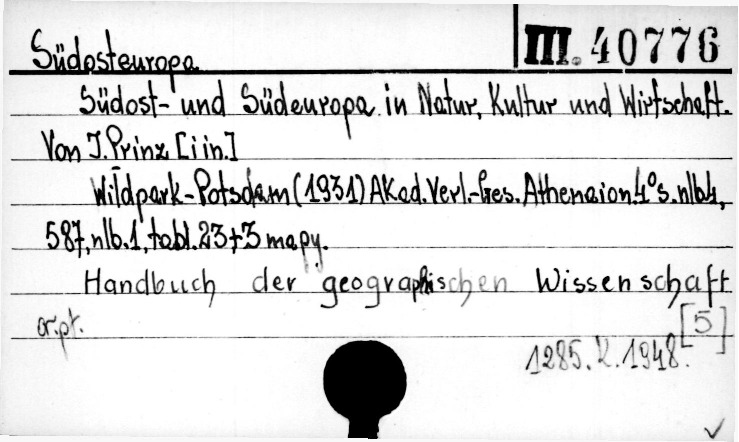 Südosteuropa III. 40776
Südost- und Südeuropa in Natur, Kultur und Wirtschaft.
Von J. Prinz [i in.]
Wildpark-Potsdam (1931) Akad. Verl.-Ges. Athenaion. 4° s. nlb4,
587, nlb. 1, tabl. 23 + 3 mapy.
Handbuch der geographischen Wissenschaft
or. pt. [5]
1285. K. 1948.